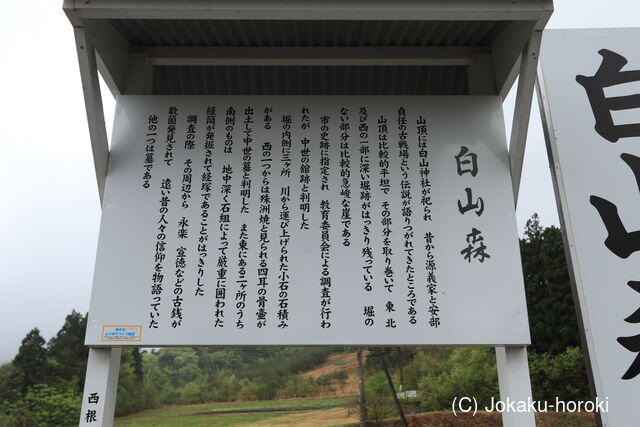 白山森
山頂には白山神社が祀られ 昔から源義家と安部
貞任の古戦場という伝説が語りつがれてきたところである
山頂は比較的平坦で その部分を取り巻いて 東 北
及び西の一部に深い堀跡がはっきり残っている 堀の
ない部分は比較的急峻な崖である
市の史跡に指定され 教育委員会による調査が行わ
れたが 中世の館跡と判明した
堀の内側に三ヶ所 川から運び上げられた小石の石積み
がある 西の一つからは珠洲焼と見られる四耳の骨壺が
出土して中世の墓と判明した また東にある二ヶ所のうち
南側のものは 地中深く石組によって厳重に囲われた
経筒が発掘されて経塚であることがはっきりした
調査の際 その周辺から 永楽 宣徳などの古銭が
数箇発見されて 遠い昔の人々の信仰を物語っていた
他の一つは墓である
西根
白山森
(C) Jokaku-horoki